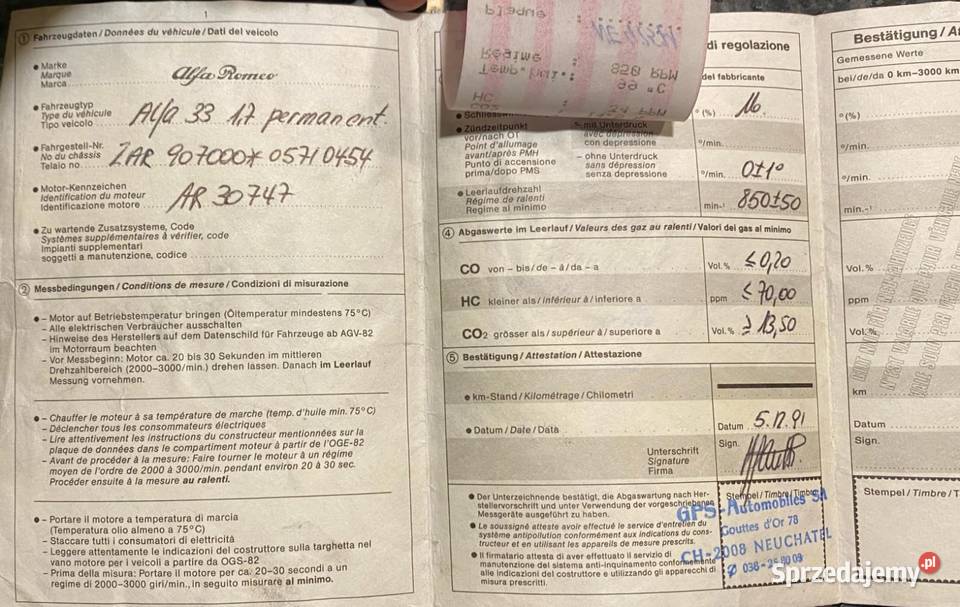 1
① Fahrzeugdaten / Données du véhicule / Dati del veicolo
● Marke
Marque
Marca
Alfa Romeo
● Fahrzeugtyp
Type du véhicule
Tipo veicolo
Alfa 33 1,7 permanent.
● Fahrgestell-Nr.
No du châssis
Telaio no
ZAR 907000* 05710454
● Motor-Kennzeichen
Identification du moteur
Identificazione motore
AR 30747
● Zu wartende Zusatzsysteme, Code
Systèmes supplémentaires à vérifier, code
Impianti supplementari
soggetti a manutenzione, codice
② Messbedingungen / Conditions de mesure / Condizioni di misurazione
● – Motor auf Betriebstemperatur bringen (Öltemperatur mindestens 75°C)
– Alle elektrischen Verbraucher ausschalten
– Hinweise des Herstellers auf dem Datenschild für Fahrzeuge ab AGV-82
im Motorraum beachten
– Vor Messbeginn: Motor ca. 20 bis 30 Sekunden im mittleren
Drehzahlbereich (2000–3000/min.) drehen lassen. Danach im Leerlauf
Messung vornehmen.
● – Chauffer le moteur à sa température de marche (temp. d'huile min. 75°C)
– Déclencher tous les consommateurs électriques
– Lire attentivement les instructions du constructeur mentionnées sur la
plaque de données dans le compartiment moteur à partir de l'OGE-82
– Avant de procéder à la mesure: Faire tourner le moteur à un régime
moyen de l'ordre de 2000 à 3000/min. pendant environ 20 à 30 sec.
Procéder ensuite à la mesure au ralenti.
● – Portare il motore a temperatura di marcia
(Temperatura olio almeno a 75°C)
– Staccare tutti i consumatori di elettricità
– Leggere attentamente le indicazioni del costruttore sulla targhetta nel
vano motore per i veicoli a partire da OGS-82
– Prima della misura: Portare il motore per ca. 20–30 secondi a un
regime di 2000–3000 giri/min., in seguito misurare al minimo.
pladne
Régime : 820 RPM
Temp. huil.: 99 °C
HC
di regolazione
del fabbricante
● Schliess
°(%) 110
● Zündzeitpunkt
vor/nach OT
Point d'allumage
avant/après PMH
Punto di accensione
prima/dopo PMS
– mit Unterdruck
avec dépression
con depressione
°/min.
– ohne Unterdruck
sans dépression
senza depressione
°/min. 0±1°
● Leerlaufdrehzahl
Régime de ralenti
Regime al minimo
min-¹ 850±50
④ Abgaswerte im Leerlauf / Valeurs des gaz au ralenti / Valori dei gas al minimo
CO von – bis / de – à / da – a Vol. % ≤ 0,20
HC kleiner als / inférieur à / inferiore a ppm ≤ 70,00
CO₂ grösser als / supérieur à / superiore a Vol. % ≥ 13,50
⑤ Bestätigung / Attestation / Attestazione
● km-Stand / Kilométrage / Chilometri
● Datum / Date / Data
Datum 5.12.91
Unterschrift
Signature
Firma
Sign.
● Der Unterzeichnende bestätigt, die Abgaswartung nach Her-
stellervorschrift und unter Verwendung der vorgeschriebenen
Messgeräte ausgeführt zu haben.
● Le soussigné atteste avoir effectué le service d'entretien du
système antipollution conformément aux indications du cons-
tructeur et en utilisant les appareils de mesure prescrits.
● Il firmatario attesta di aver effettuato il servizio di
manutenzione del sistema anti-inquinamento conformemente
alle indicazioni del costruttore e utilizzando gli apparecchi di
misura prescritti.
Stempel / Timbre / Timbro
GPS-Automobiles SA
Gouttes d'Or 78
CH-2008 NEUCHATEL
Bestätigung / At
Gemessene Werte
bei/de/da 0 km–3000 km
°(%)
°/min.
°/min.
min.-¹
Vol. %
ppm
Vol. %
km
Datum
Sign.
Stempel / Timbre / T
Sprzedajemy.pl